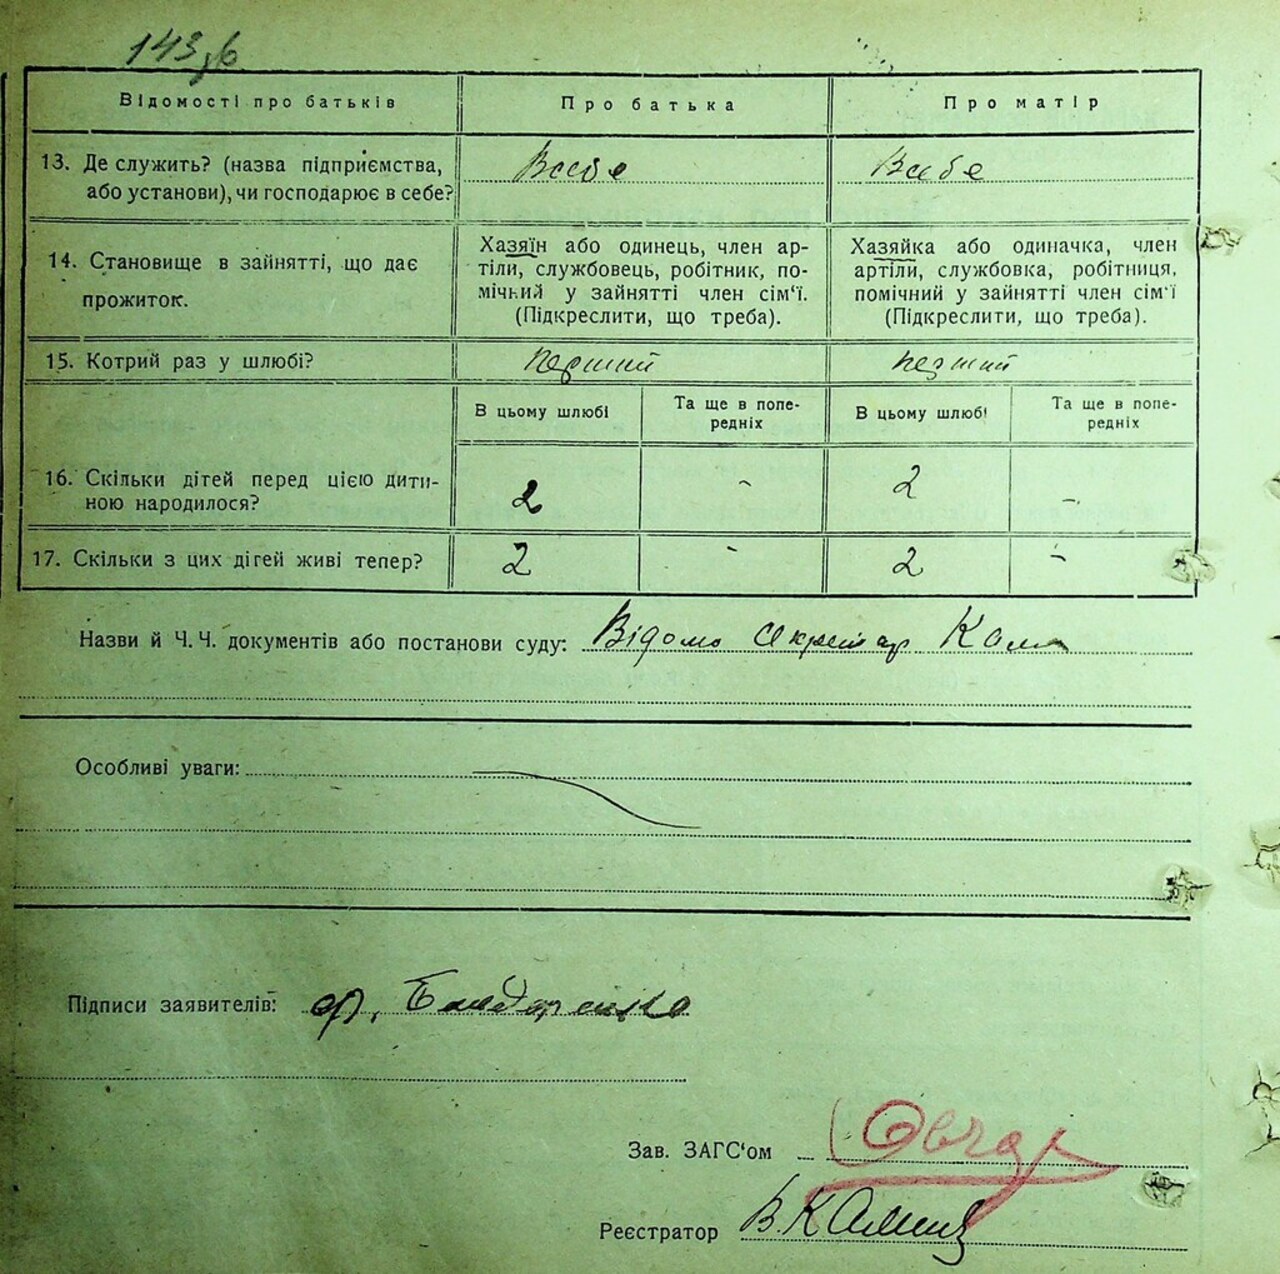 143 зв
Відомості про батьків
Про батька
Про матір
13. Де служить? (назва підприємства, або установи), чи господарює в себе?
Всебе
Всебе
14. Становище в зайнятті, що дає прожиток.
Хазяїн або одинець, член ар-
тіли, службовець, робітник, по-
мічний у зайнятті член сім‘ї.
(Підкреслити, що треба).
Хазяйка або одиначка, член
артіли, службовка, робітниця,
помічний у зайнятті член сім‘ї
(Підкреслити, що треба).
15. Котрий раз у шлюбі?
перший
перший
В цьому шлюбі
Та ще в попе-
редніх
В цьому шлюбі
Та ще в попе-
редніх
16. Скільки дітей перед цією дити-
ною народилося?
2
-
2
-
17. Скільки з цих дітей живі тепер?
2
-
2
-
Назви й Ч. Ч. документів або постанови суду: Відомо
Особливі уваги:
Підписи заявителів:
Зав. ЗАГС‘ом Овчар
Реєстратор